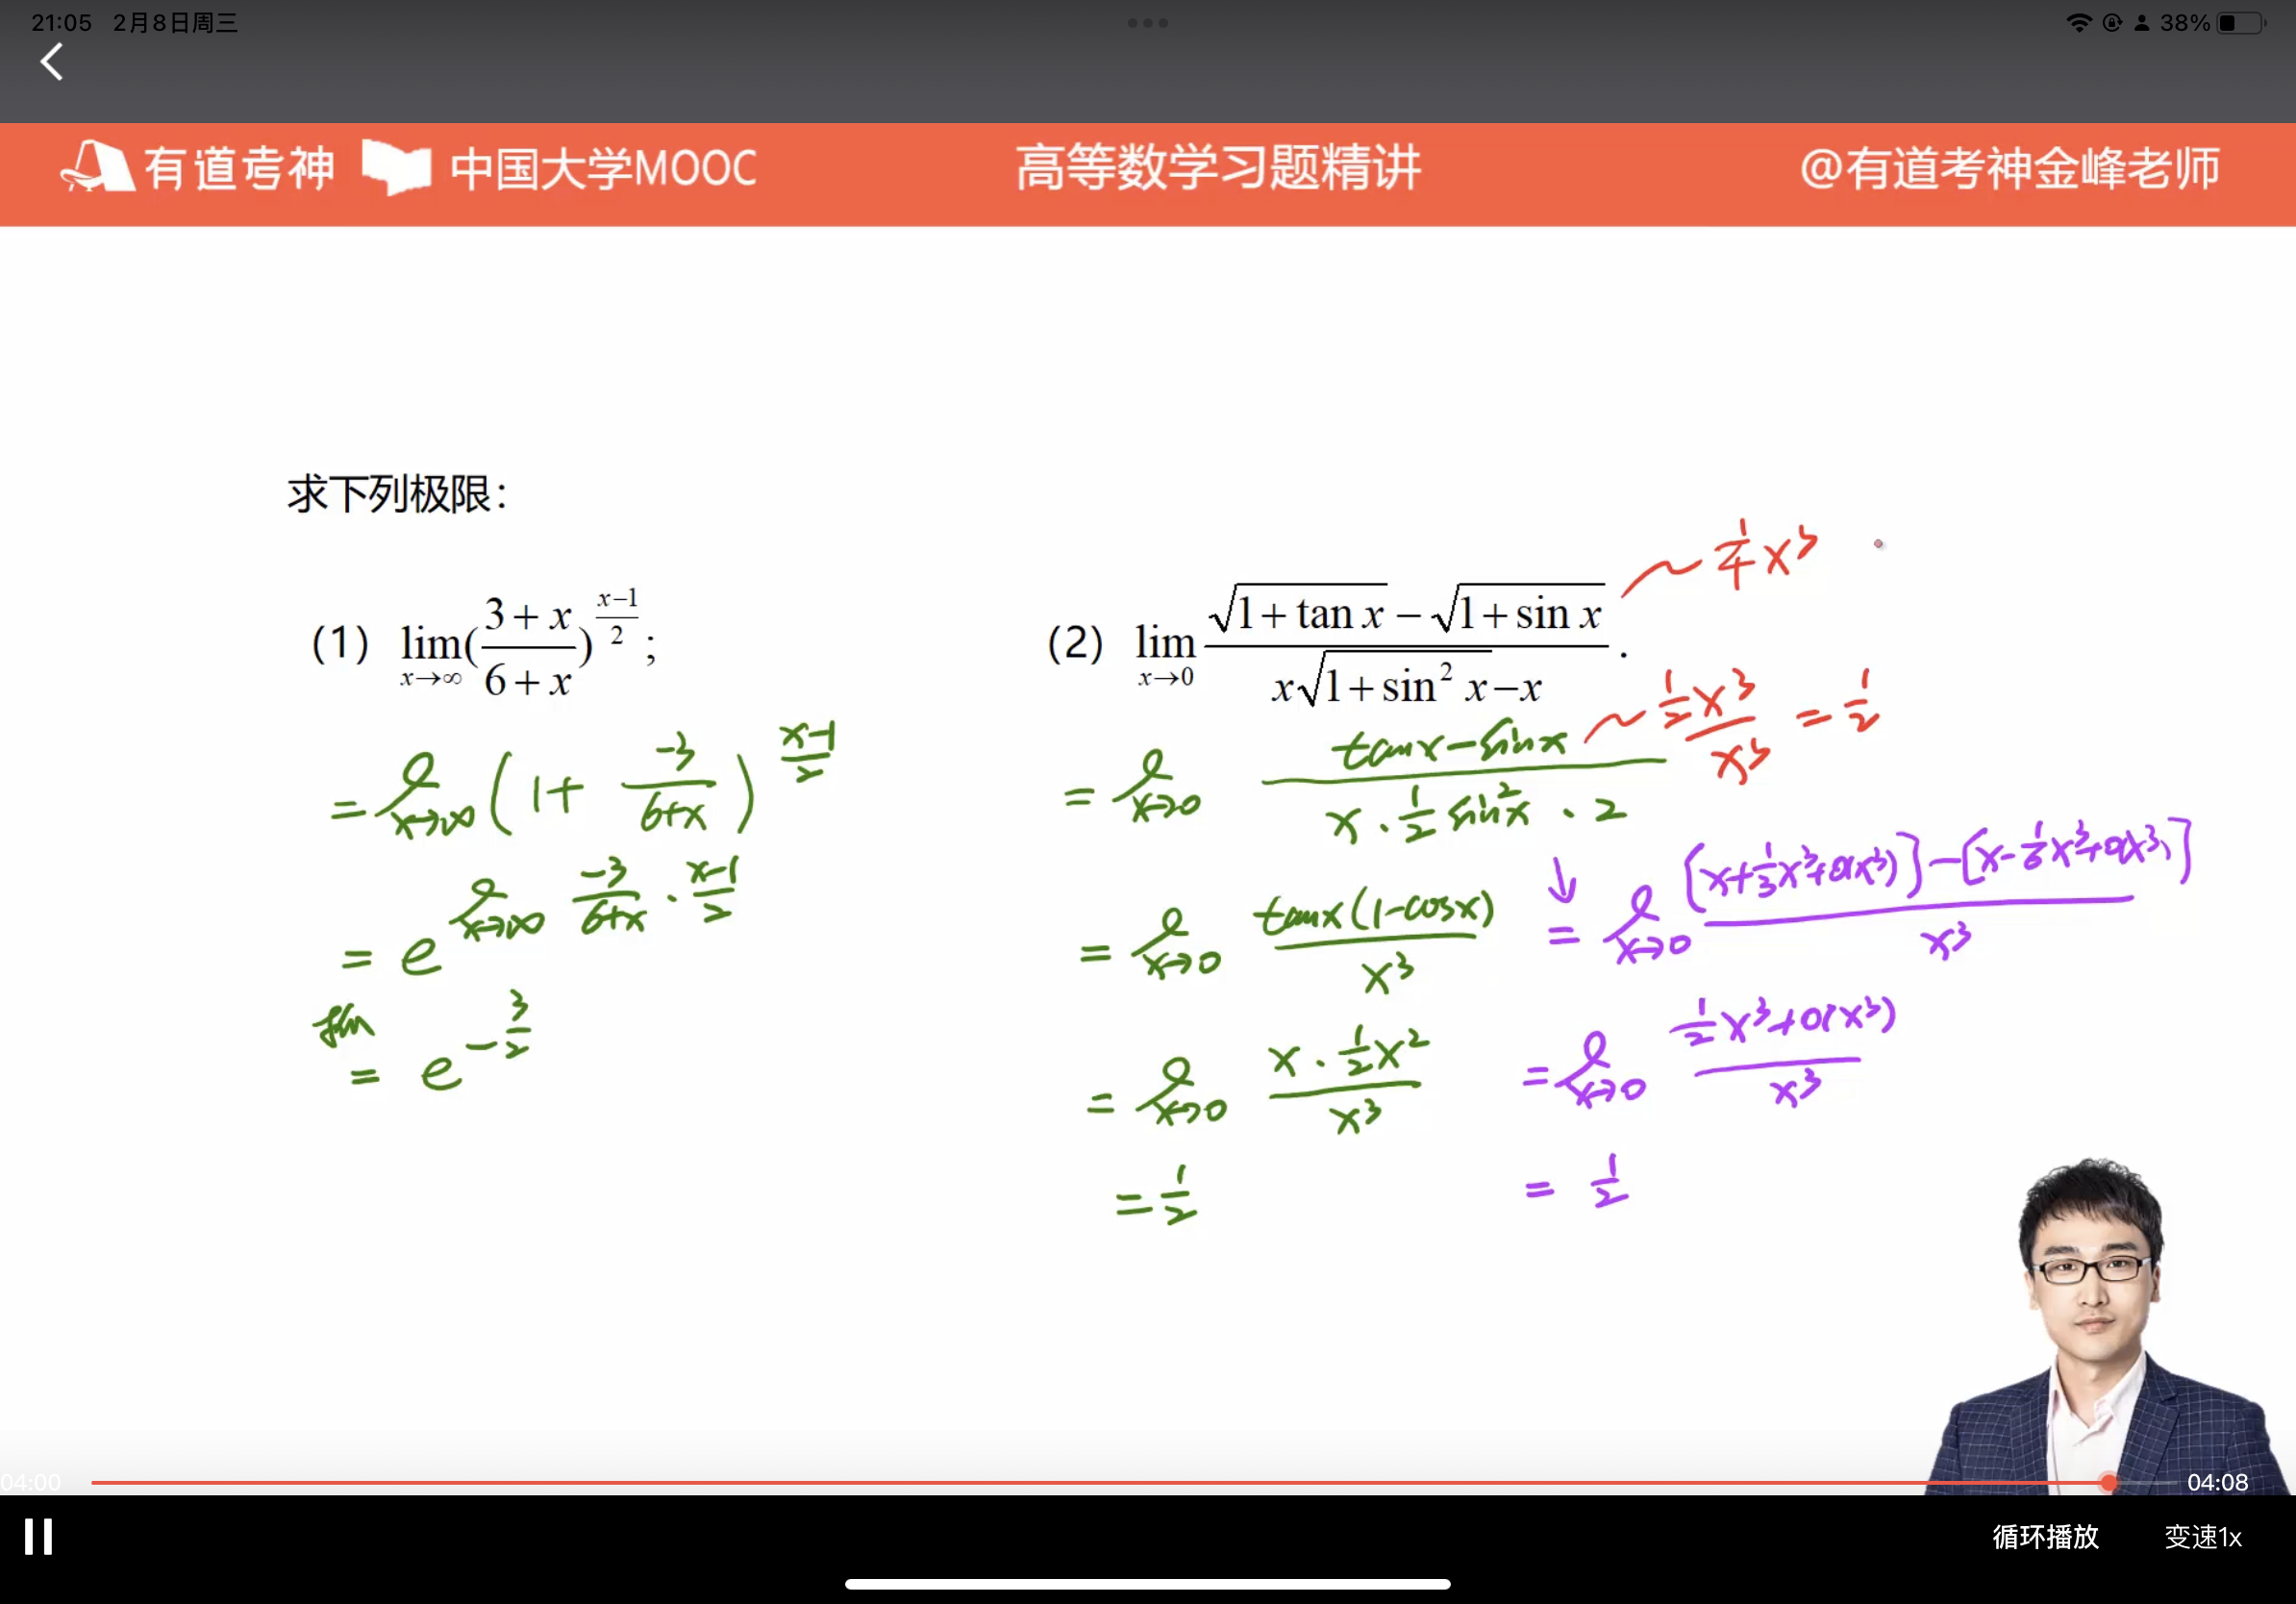 21:05 2月8日周三
38%
有道考神 中国大学MOOC 高等数学习题精讲 @有道考神金峰老师
求下列极限：
(1) lim x→∞ ((3+x)/(6+x))^((x−1)/2);
= lim x→∞ (1+ (-3)/(6+x))^((x-1)/2)
= e^(lim x→∞ (-3)/(6+x) · (x-1)/2)
= e^(-3/2)
(2) lim x→0 (√(1+tan x) − √(1+sin x))/(x√(1+sin² x) −x).
~ 1/4 x³
= lim x→0 (tanx-sinx)/(x · 1/2 sin²x · 2)
~ (1/2 x³)/x³ = 1/2
= lim x→0 (tanx(1-cosx))/x³
= lim x→0 (x · 1/2 x²)/x³
= 1/2
↓
= lim x→0 ([x+1/3x³+o(x³)]-[x-1/6x³+o(x³)])/x³
= lim x→0 (1/2 x³+o(x³))/x³
= 1/2
04:00 04:08
循环播放 变速1x